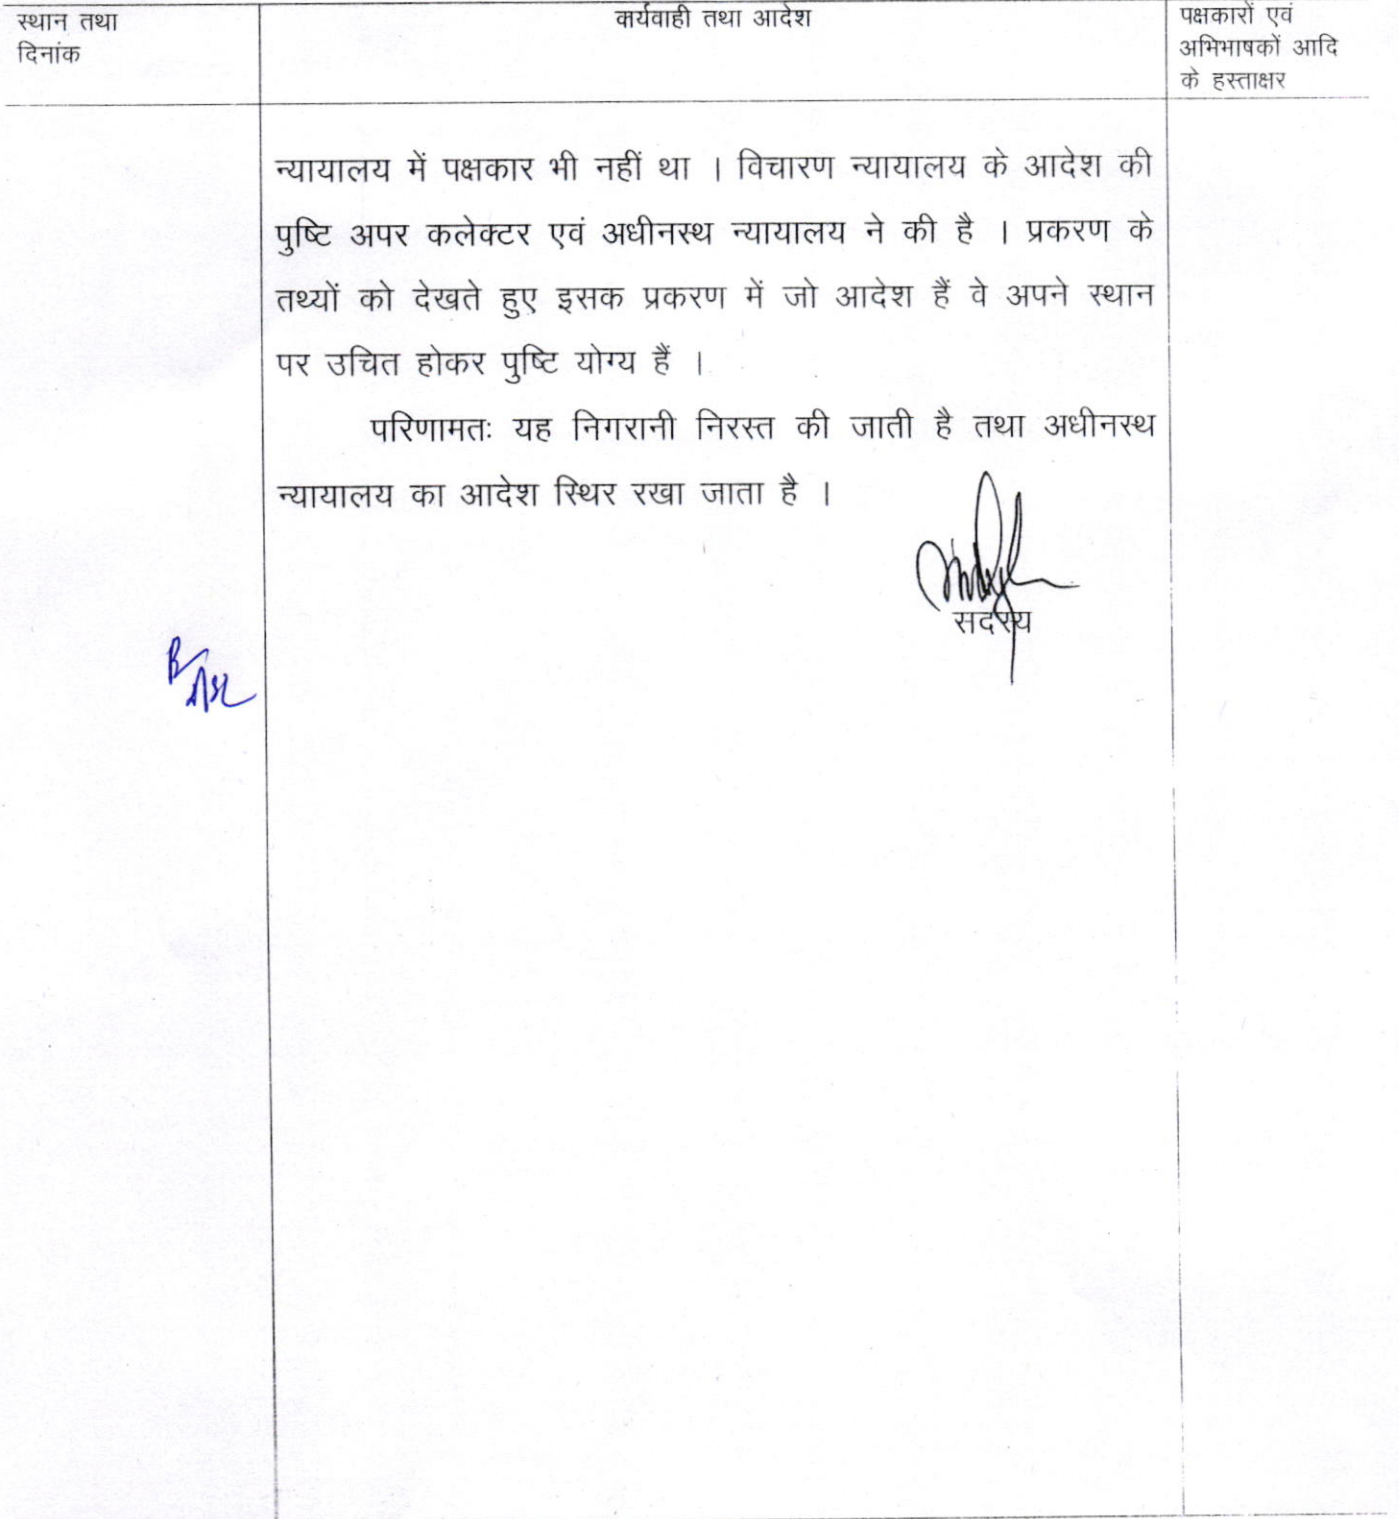 स्थान तथा
दिनांक
कार्यवाही तथा आदेश
पक्षकारों एवं
अभिभाषकों आदि
के हस्ताक्षर
न्यायालय में पक्षकार भी नहीं था । विचारण न्यायालय के आदेश की
पुष्टि अपर कलेक्टर एवं अधीनस्थ न्यायालय ने की है । प्रकरण के
तथ्यों को देखते हुए इसक प्रकरण में जो आदेश हैं वे अपने स्थान
पर उचित होकर पुष्टि योग्य हैं ।
परिणामतः यह निगरानी निरस्त की जाती है तथा अधीनस्थ
न्यायालय का आदेश स्थिर रखा जाता है ।
सदस्य